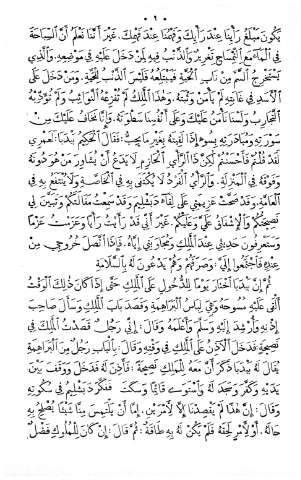 ٦
يَكُونُ مَبْلَغُ رَأْيِنَا عِنْدَ رَأْيِكَ وَفَهْمِنَا عِنْدَ فَهْمِكَ. غَيْرَ أَنَّنَا نَعْلَمُ أَنَّ السِّبَاحَةَ
فِي الْمَاءِ مَعَ التِّمْسَاحِ تَغْرِيرٌ وَالذَّنْبُ فِيهِ لِمَنْ دَخَلَ عَلَيْهِ فِي مَوْضِعِهِ. وَالَّذِي
يَسْتَخْرِجُ السَّمَّ مِنْ نَابِ الْحَيَّةِ فَيَبْتَلِعُهُ فَلَيْسَ الذَّنْبُ لِلْحَيَّةِ. وَمَنْ دَخَلَ عَلَى
الْأَسَدِ فِي غَابَتِهِ لَمْ يَأْمَنْ وَثْبَتَهُ. وَهَذَا الْمَلِكُ لَمْ تُفْزِعْهُ النَّوَائِبُ وَلَمْ تُؤَدِّبْهُ
التَّجَارِبُ وَلَسْنَا نَأْمَنُ عَلَيْكَ وَعَلَى أَنْفُسِنَا سَطْوَتَهُ. وَإِنَّا نَخَافُ عَلَيْكَ مِنْ
سَوْرَتِهِ وَمُبَادَرَتِهِ بِسُوءٍ إِذَا لَقِيتَهُ بِغَيْرِ مَا يُحِبُّ: فَقَالَ الْحَكِيمُ بَيْدَبَا: لَعَمْرِي
لَقَدْ قُلْتُمْ فَأَحْسَنْتُمْ لَكِنَّ ذَا الرَّأْيِ الْحَازِمَ لَا يَدَعُ أَنْ يُشَاوِرَ مَنْ هُوَ دُونَهُ
وَفَوْقَهُ فِي الْمَنْزِلَةِ. وَالرَّأْيُ الْفَرْدُ لَا يُكْتَفَى بِهِ فِي الْخَاصَّةِ وَلَا يُنْتَفَعُ بِهِ فِي
الْعَامَّةِ. وَقَدْ صَحَّتْ عَزِيمَتِي عَلَى لِقَاءِ دَبْشَلِيمَ. وَقَدْ سَمِعْتُ مَقَالَتَكُمْ وَتَبَيَّنَ لِي
نَصِيحَتُكُمْ وَالْإِشْفَاقُ عَلَيَّ وَعَلَيْكُمْ. غَيْرَ أَنِّي قَدْ رَأَيْتُ رَأْيًا وَعَزَمْتُ عَزْمًا
وَسَتَعْرِفُونَ حَدِيثِي عِنْدَ الْمَلِكِ وَمُجَاوَبَتِي إِيَّاهُ. فَإِذَا اتَّصَلَ خُرُوجِي مِنْ
عِنْدِهِ فَاجْتَمِعُوا إِلَيَّ: وَصَرَفَهُمْ وَهُمْ يَدْعُونَ لَهُ بِالسَّلَامَةِ
ثُمَّ إِنَّ بَيْدَبَا اخْتَارَ يَوْمًا لِلدُّخُولِ عَلَى الْمَلِكِ حَتَّى إِذَا كَانَ ذَلِكَ الْوَقْتُ
أَلْقَى عَلَيْهِ مُسُوحَهُ وَهِيَ لِبَاسُ الْبَرَاهِمَةِ وَقَصَدَ بَابَ الْمَلِكِ وَسَأَلَ صَاحِبَ
إِذْنِهِ وَأُرْشِدَ إِلَيْهِ وَسَلَّمَ وَأَعْلَمَهُ وَقَالَ: إِنِّي رَجُلٌ قَصَدْتُ الْمَلِكَ فِي
نَصِيحَةٍ: فَدَخَلَ الْآذِنُ عَلَى الْمَلِكِ فِي وَقْتِهِ وَقَالَ: بِالْبَابِ رَجُلٌ مِنَ الْبَرَاهِمَةِ
يُقَالُ لَهُ بَيْدَبَا ذَكَرَ أَنَّ مَعَهُ لِلْمَلِكِ نَصِيحَةً: فَأَذِنَ لَهُ فَدَخَلَ وَوَقَفَ بَيْنَ
يَدَيْهِ وَكَفَّرَ وَسَجَدَ لَهُ وَاسْتَوَى قَائِمًا وَسَكَتَ. فَفَكَّرَ دَبْشَلِيمُ فِي سُكُوتِهِ
وَقَالَ: إِنَّ هَذَا لَمْ يَقْصِدْنَا إِلَّا لِأَمْرَيْنِ. إِمَّا أَنْ يَلْتَمِسَ مِنَّا شَيْئًا يُصْلِحُ بِهِ
حَالَهُ. أَوْ لِأَمْرٍ لَحِقَهُ فَلَمْ يَكُنْ لَهُ بِهِ طَاقَةٌ: ثُمَّ قَالَ: إِنْ كَانَ لِلْمُلُوكِ فَضْلٌ